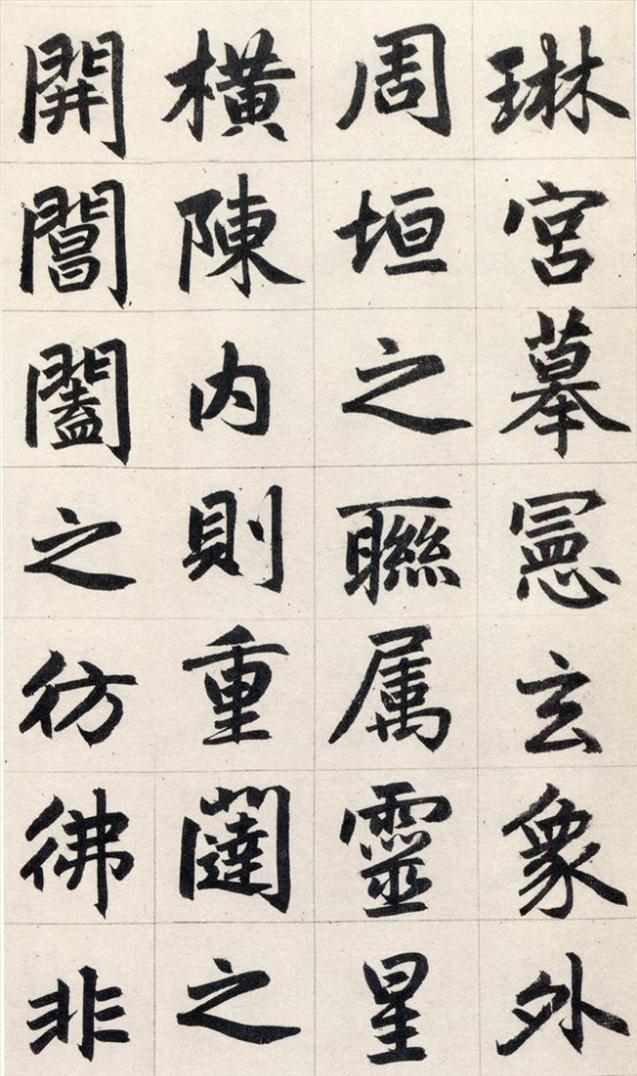 琳宮摹憲玄象外
周垣之聯属靈星
橫陳内則重闥之
開閶闔之彷彿非